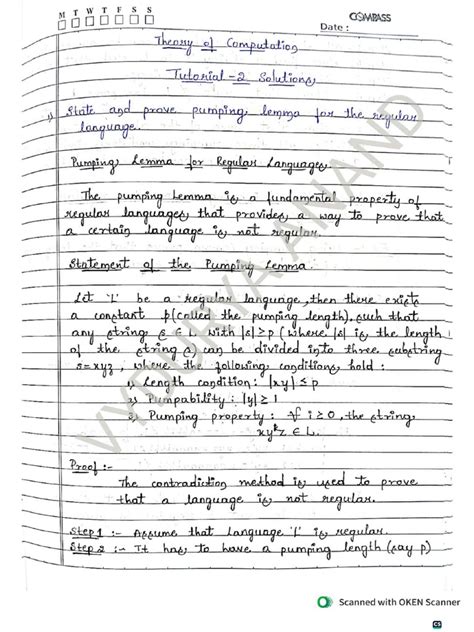 M T W T F S S
COMPASS
Date :
Theory of Computation
Tutorial - 2 Solutions
1) State and prove pumping lemma for the regular
language.
Pumping Lemma for Regular Languages.
The pumping Lemma is a fundamental property of
regular languages that provides a way to prove that
a certain language is not regular.
Statement of the Pumping Lemma.
Let 'L' be a regular language, then there exists
a constant p(called the pumping length). such that
any string s ∈ L with |s| ≥ p (where |s| is the length
of the string s) can be divided into three substring
s=xyz , where the following conditions hold :
1) Length condition : |xy| ≤ p
2) Pumpability : |y| ≥ 1
3) Pumping property : ∀ i ≥ 0 , the string
∈ L.
Proof :-
The contradiction method is used to prove
that a language is not regular.
Step 1 :- Assume that Language 'L' is regular.
Step 2 :- It has to have a pumping length (say p)
ANAND
Scanned with OKEN Scanner
CS